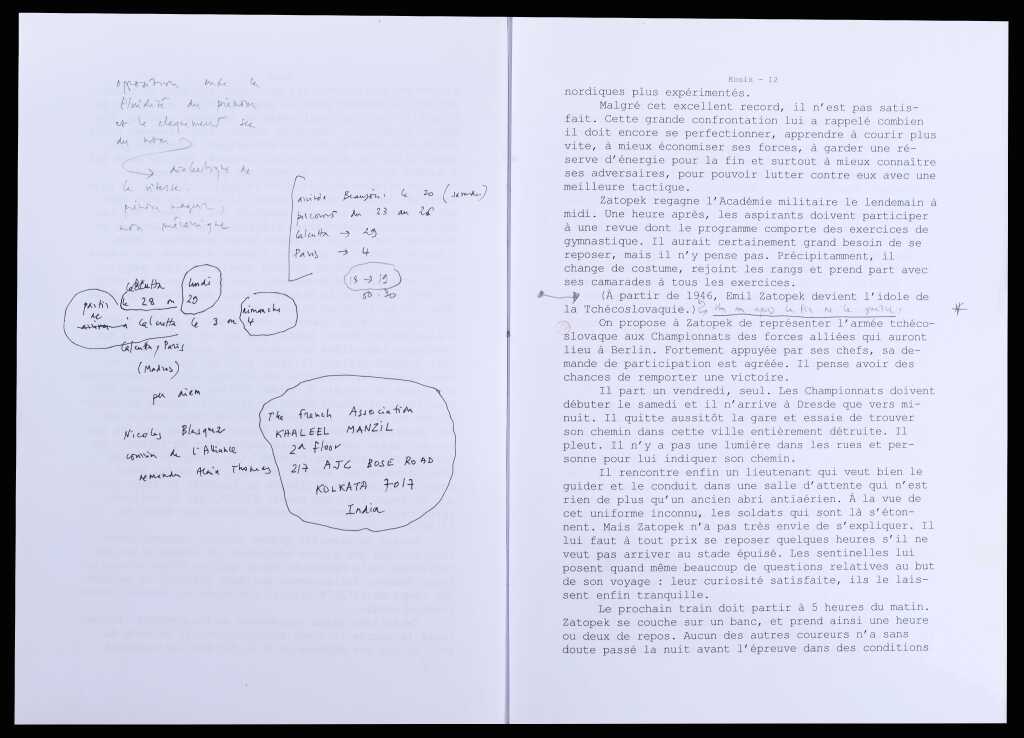 opposition entre la
fluidité du prénom
et le claquement sec
du nom
dialectique de
la vitesse.
non mécanique
arrivée Beaujon. le 20 (samedi)
parcours du 23 au 26
Calcutta → 29
Paris → 4
18 → 19
50.30
Calcutta lundi
partir le 28 ou 29
de
à Calcutta le 3 ou 4 dimanche
Calcutta, Paris
(Madras)
per diem
Nicolas Blasquez
cousin de l'Alliance
remander Alain Thomas
The French Association
KHALEEL MANZIL
2d floor
217 AJC BOSE ROAD
KOLKATA 7017
India
Kosik - 12
nordiques plus expérimentés.
Malgré cet excellent record, il n'est pas satis-
fait. Cette grande confrontation lui a rappelé combien
il doit encore se perfectionner, apprendre à courir plus
vite, à mieux économiser ses forces, à garder une ré-
serve d'énergie pour la fin et surtout à mieux connaître
ses adversaires, pour pouvoir lutter contre eux avec une
meilleure tactique.
Zatopek regagne l'Académie militaire le lendemain à
midi. Une heure après, les aspirants doivent participer
à une revue dont le programme comporte des exercices de
gymnastique. Il aurait certainement grand besoin de se
reposer, mais il n'y pense pas. Précipitamment, il
change de costume, rejoint les rangs et prend part avec
ses camarades à tous les exercices.
(À partir de 1946, Emil Zatopek devient l'idole de
la Tchécoslovaquie.) la fin de la guerre.
On propose à Zatopek de représenter l'armée tchéco-
slovaque aux Championnats des forces alliées qui auront
lieu à Berlin. Fortement appuyée par ses chefs, sa de-
mande de participation est agréée. Il pense avoir des
chances de remporter une victoire.
Il part un vendredi, seul. Les Championnats doivent
débuter le samedi et il n'arrive à Dresde que vers mi-
nuit. Il quitte aussitôt la gare et essaie de trouver
son chemin dans cette ville entièrement détruite. Il
pleut. Il n'y a pas une lumière dans les rues et per-
sonne pour lui indiquer son chemin.
Il rencontre enfin un lieutenant qui veut bien le
guider et le conduit dans une salle d'attente qui n'est
rien de plus qu'un ancien abri antiaérien. À la vue de
cet uniforme inconnu, les soldats qui sont là s'éton-
nent. Mais Zatopek n'a pas très envie de s'expliquer. Il
lui faut à tout prix se reposer quelques heures s'il ne
veut pas arriver au stade épuisé. Les sentinelles lui
posent quand même beaucoup de questions relatives au but
de son voyage : leur curiosité satisfaite, ils le lais-
sent enfin tranquille.
Le prochain train doit partir à 5 heures du matin.
Zatopek se couche sur un banc, et prend ainsi une heure
ou deux de repos. Aucun des autres coureurs n'a sans
doute passé la nuit avant l'épreuve dans des conditions